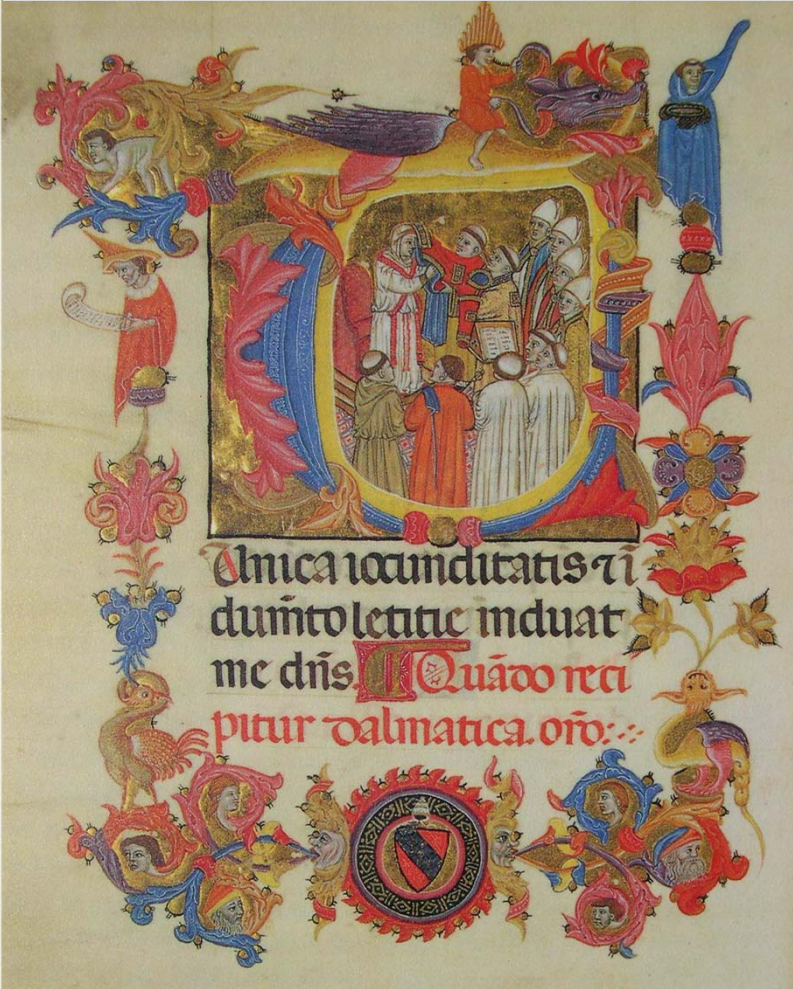 TUnica iocunditatis ⁊ i
dum̃to letitie induat
me dñs. ¶ Quãdo reci
pitur dalmatica. orõ: